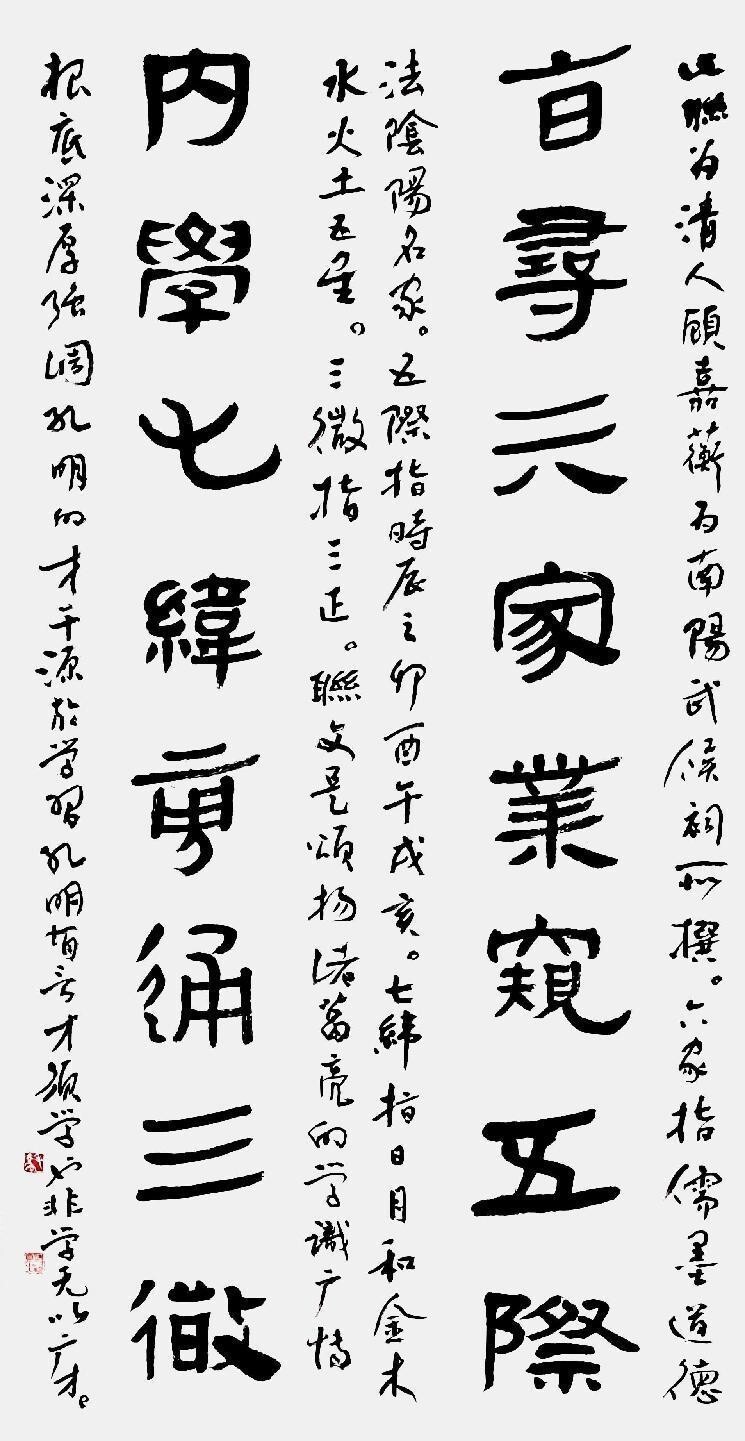 此聯为清人顧嘉蘅为南陽武候祠所撰。六家指儒墨道德
旨尋六家業窺五際
法陰陽名家。五際指時辰之卯酉午戌亥。七緯指日月和金木
水火土五星。三微指三正。聯文是頌扬诸葛亮的学識广博
内學七緯旁通三微
根底深厚强调孔明的才干源於学習孔明曾言才須学也非学无以广才。